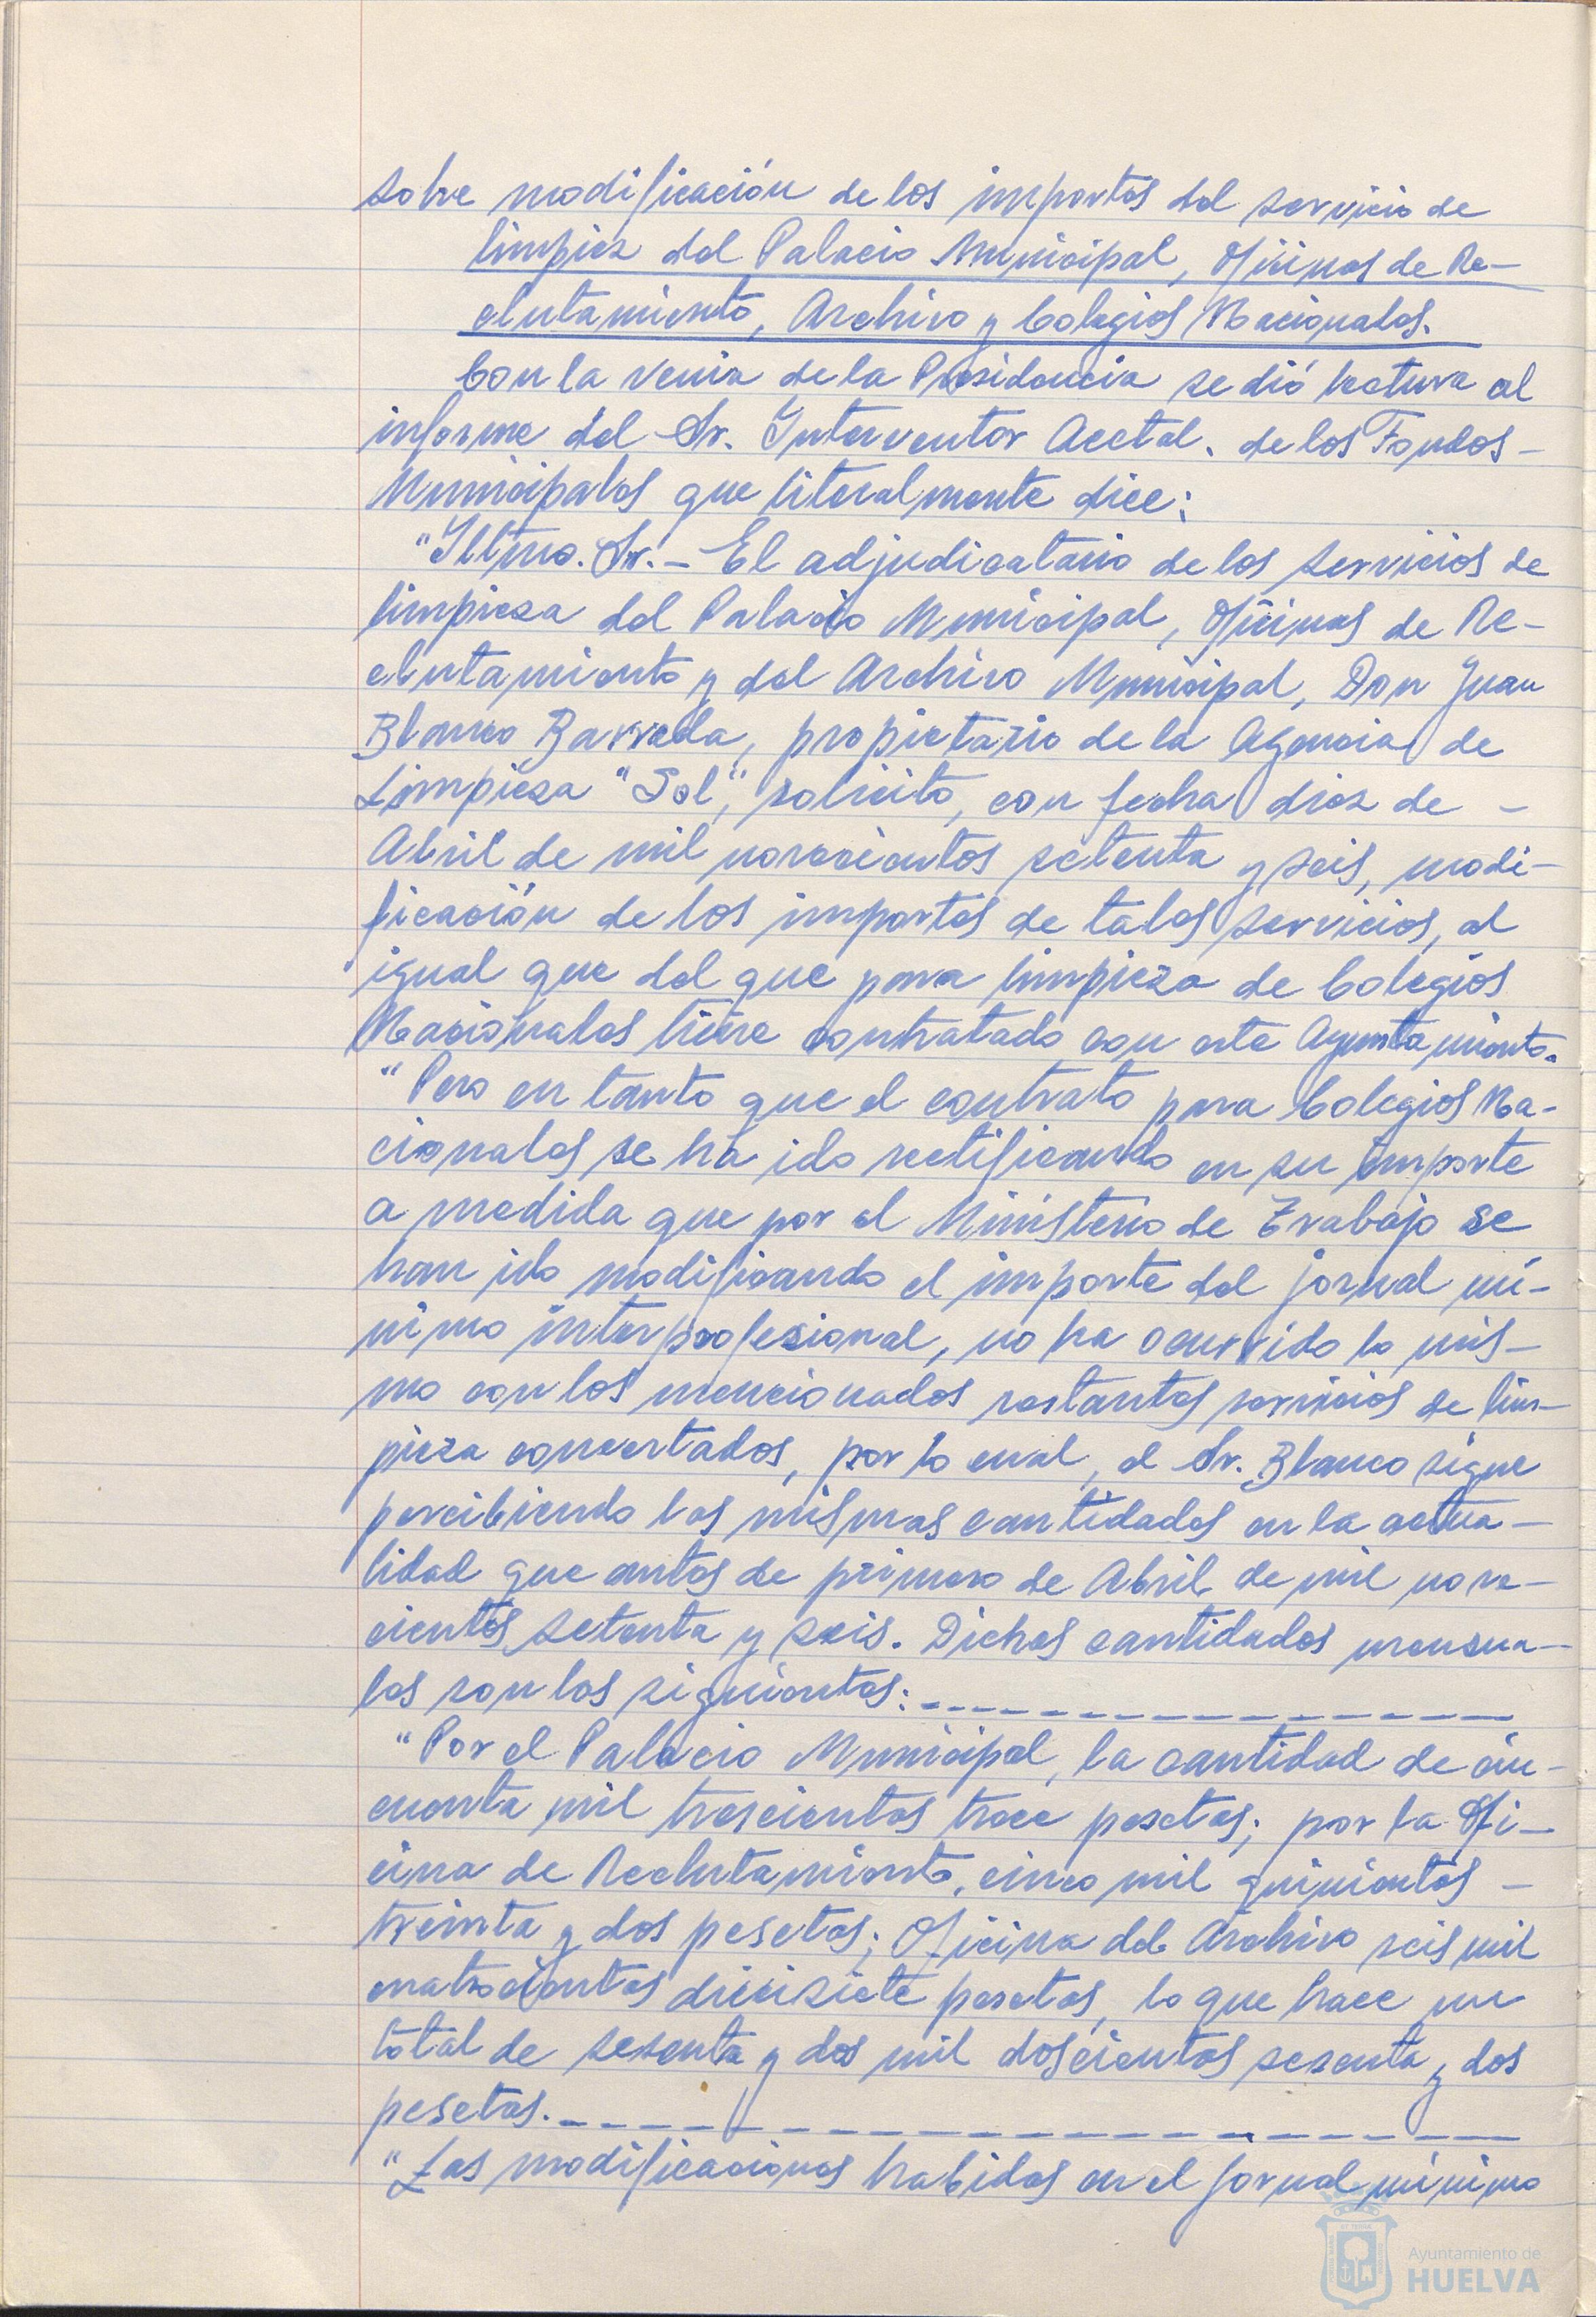 sobre modificación de los importes del servicio de
limpieza del Palacio Municipal, Oficinas de Re-
clutamiento, Archivo y Colegios Nacionales.
Con la venia de la Presidencia se dió lectura al
informe del Sr. Interventor Acctal. de los Fondos -
Municipales que literalmente dice:
"Iltmo. Sr. - El adjudicatario de los servicios de
limpieza del Palacio Municipal, Oficinas de Re-
clutamiento y del Archivo Municipal, Don Juan
Blanco Barreda, propietario de la Agencia de
Limpieza "Sol", solicitó, con fecha diez de -
Abril de mil novecientos setenta y seis, modi-
ficación de los importes de tales servicios, al
igual que del que para limpieza de Colegios
Nacionales tiene contratado con este Ayuntamiento.
"Pero en tanto que el contrato para Colegios Na-
cionales se ha ido rectificando en su importe
a medida que por el Ministerio de Trabajo se
han ido modificando el importe del jornal mí-
nimo interprofesional, no ha ocurrido lo mis-
mo con los mencionados restantes servicios de lim-
pieza concertados, por lo cual, el Sr. Blanco sigue
percibiendo las mismas cantidades en la actua-
lidad que antes de primero de Abril de mil nove-
cientos setenta y seis. Dichas cantidades mensua-
les son las siguientes: - - - - - - - - - - - - - - -
"Por el Palacio Municipal, la cantidad de cin-
cuenta mil trescientas trece pesetas; por la Ofi-
cina de Reclutamiento, cinco mil quinientas -
treinta y dos pesetas; Oficina del Archivo seis mil
cuatrocientas diecisiete pesetas, lo que hace un
total de sesenta y dos mil doscientas sesenta y dos
pesetas. - - - - - - - - - - - - - - - - - - - -
"Las modificaciones habidas en el jornal mínimo
Ayuntamiento de
HUELVA